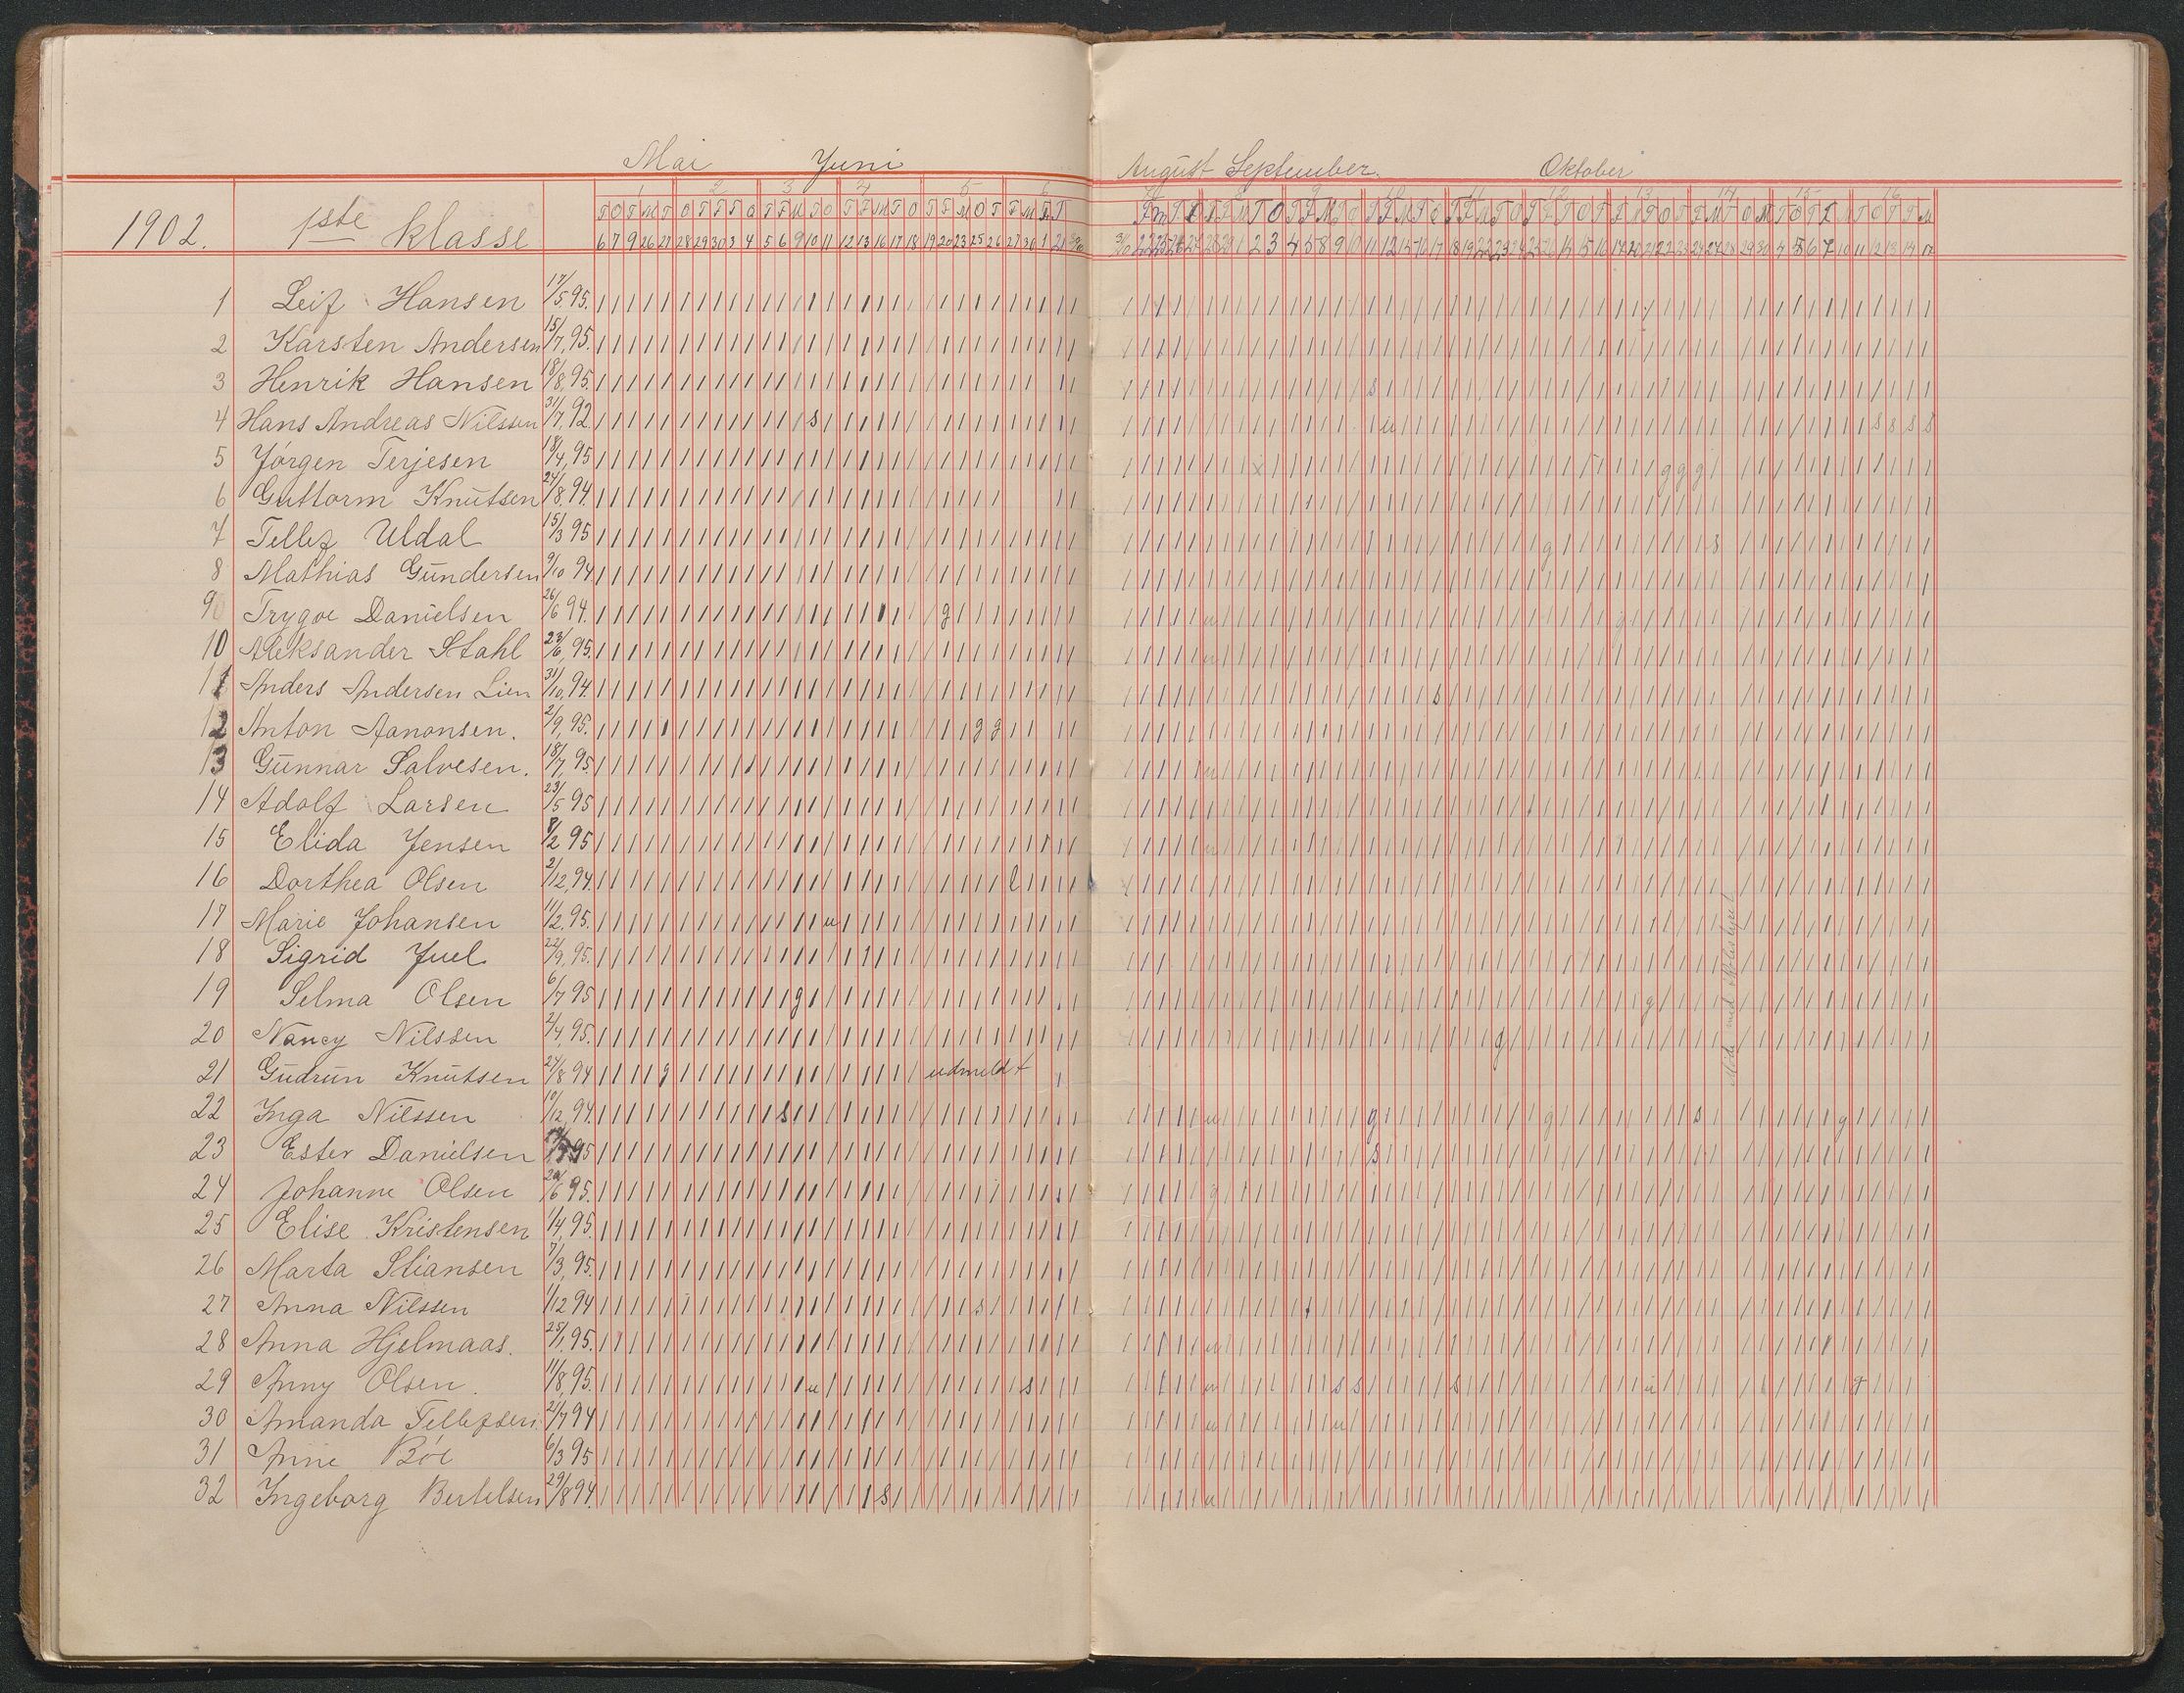 Mai Juni August September. Oktober
1902. 1ste klasse
1 2 3 4 5 6 9 10 11 12 13 14 15 16
6 7 9 26 27 28 29 30 3 4 5 6 9 10 11 12 13 16 17 18 19 20 23 25 26 27 30 1 2
1 Leif Hansen 17/5 95.
2 Karsten Andersen 15/7, 95.
3 Henrik Hansen 18/8, 95.
4 Hans Andreas Nilssen 31/7, 92. s u s s s s
5 Jörgen Terjesen 18/4, 95 g g g
6 Guttorm Knutsen 24/8, 94.
7 Tellef Uldal 15/3 95 g s
8 Mathias Gundersen 9/10 94
9 Trygve Danielsen 26/6 94. g u g
10 Aleksander Stahl 23/6, 95. u
11 Anders Andersen Lien 31/10, 94. s
12 Anton Aanonsen. 2/9, 95. g g
13 Gunnar Salvesen. 18/7, 95. u
14 Adolf Larsen 23/5 95
15 Elida Jensen 8/2 95 u
16 Dorthea Olsen 2/12, 94. l
17 Marie Johansen 11/2, 95. u
18 Sigrid Juel 22/9, 95.
19 Selma Olsen 6/7 95 g g
20 Nancy Nilssen 2/4, 95. g
21 Gudrun Knutsen 24/8 94 g udmeldt
22 Inga Nilssen 10/12, 94. s u g g s g
23 Ester Danielsen 95 s
24 Johanne Olsen 20/6 95. g
25 Elise Kristensen 1/4, 95.
26 Marta Stiansen 7/3, 95.
27 Anna Nilssen 1/12 94 s
28 Anna Hjelmaas. 25/1, 95. u
29 Anny Olsen. 11/8, 95. u s u s s s u
30 Amanda Tellefsen. 21/7 94 u u
31 Anne Böe 6/3 95
32 Ingeborg Bertelsen 29/8 94. s u
Möde med Skolestyret